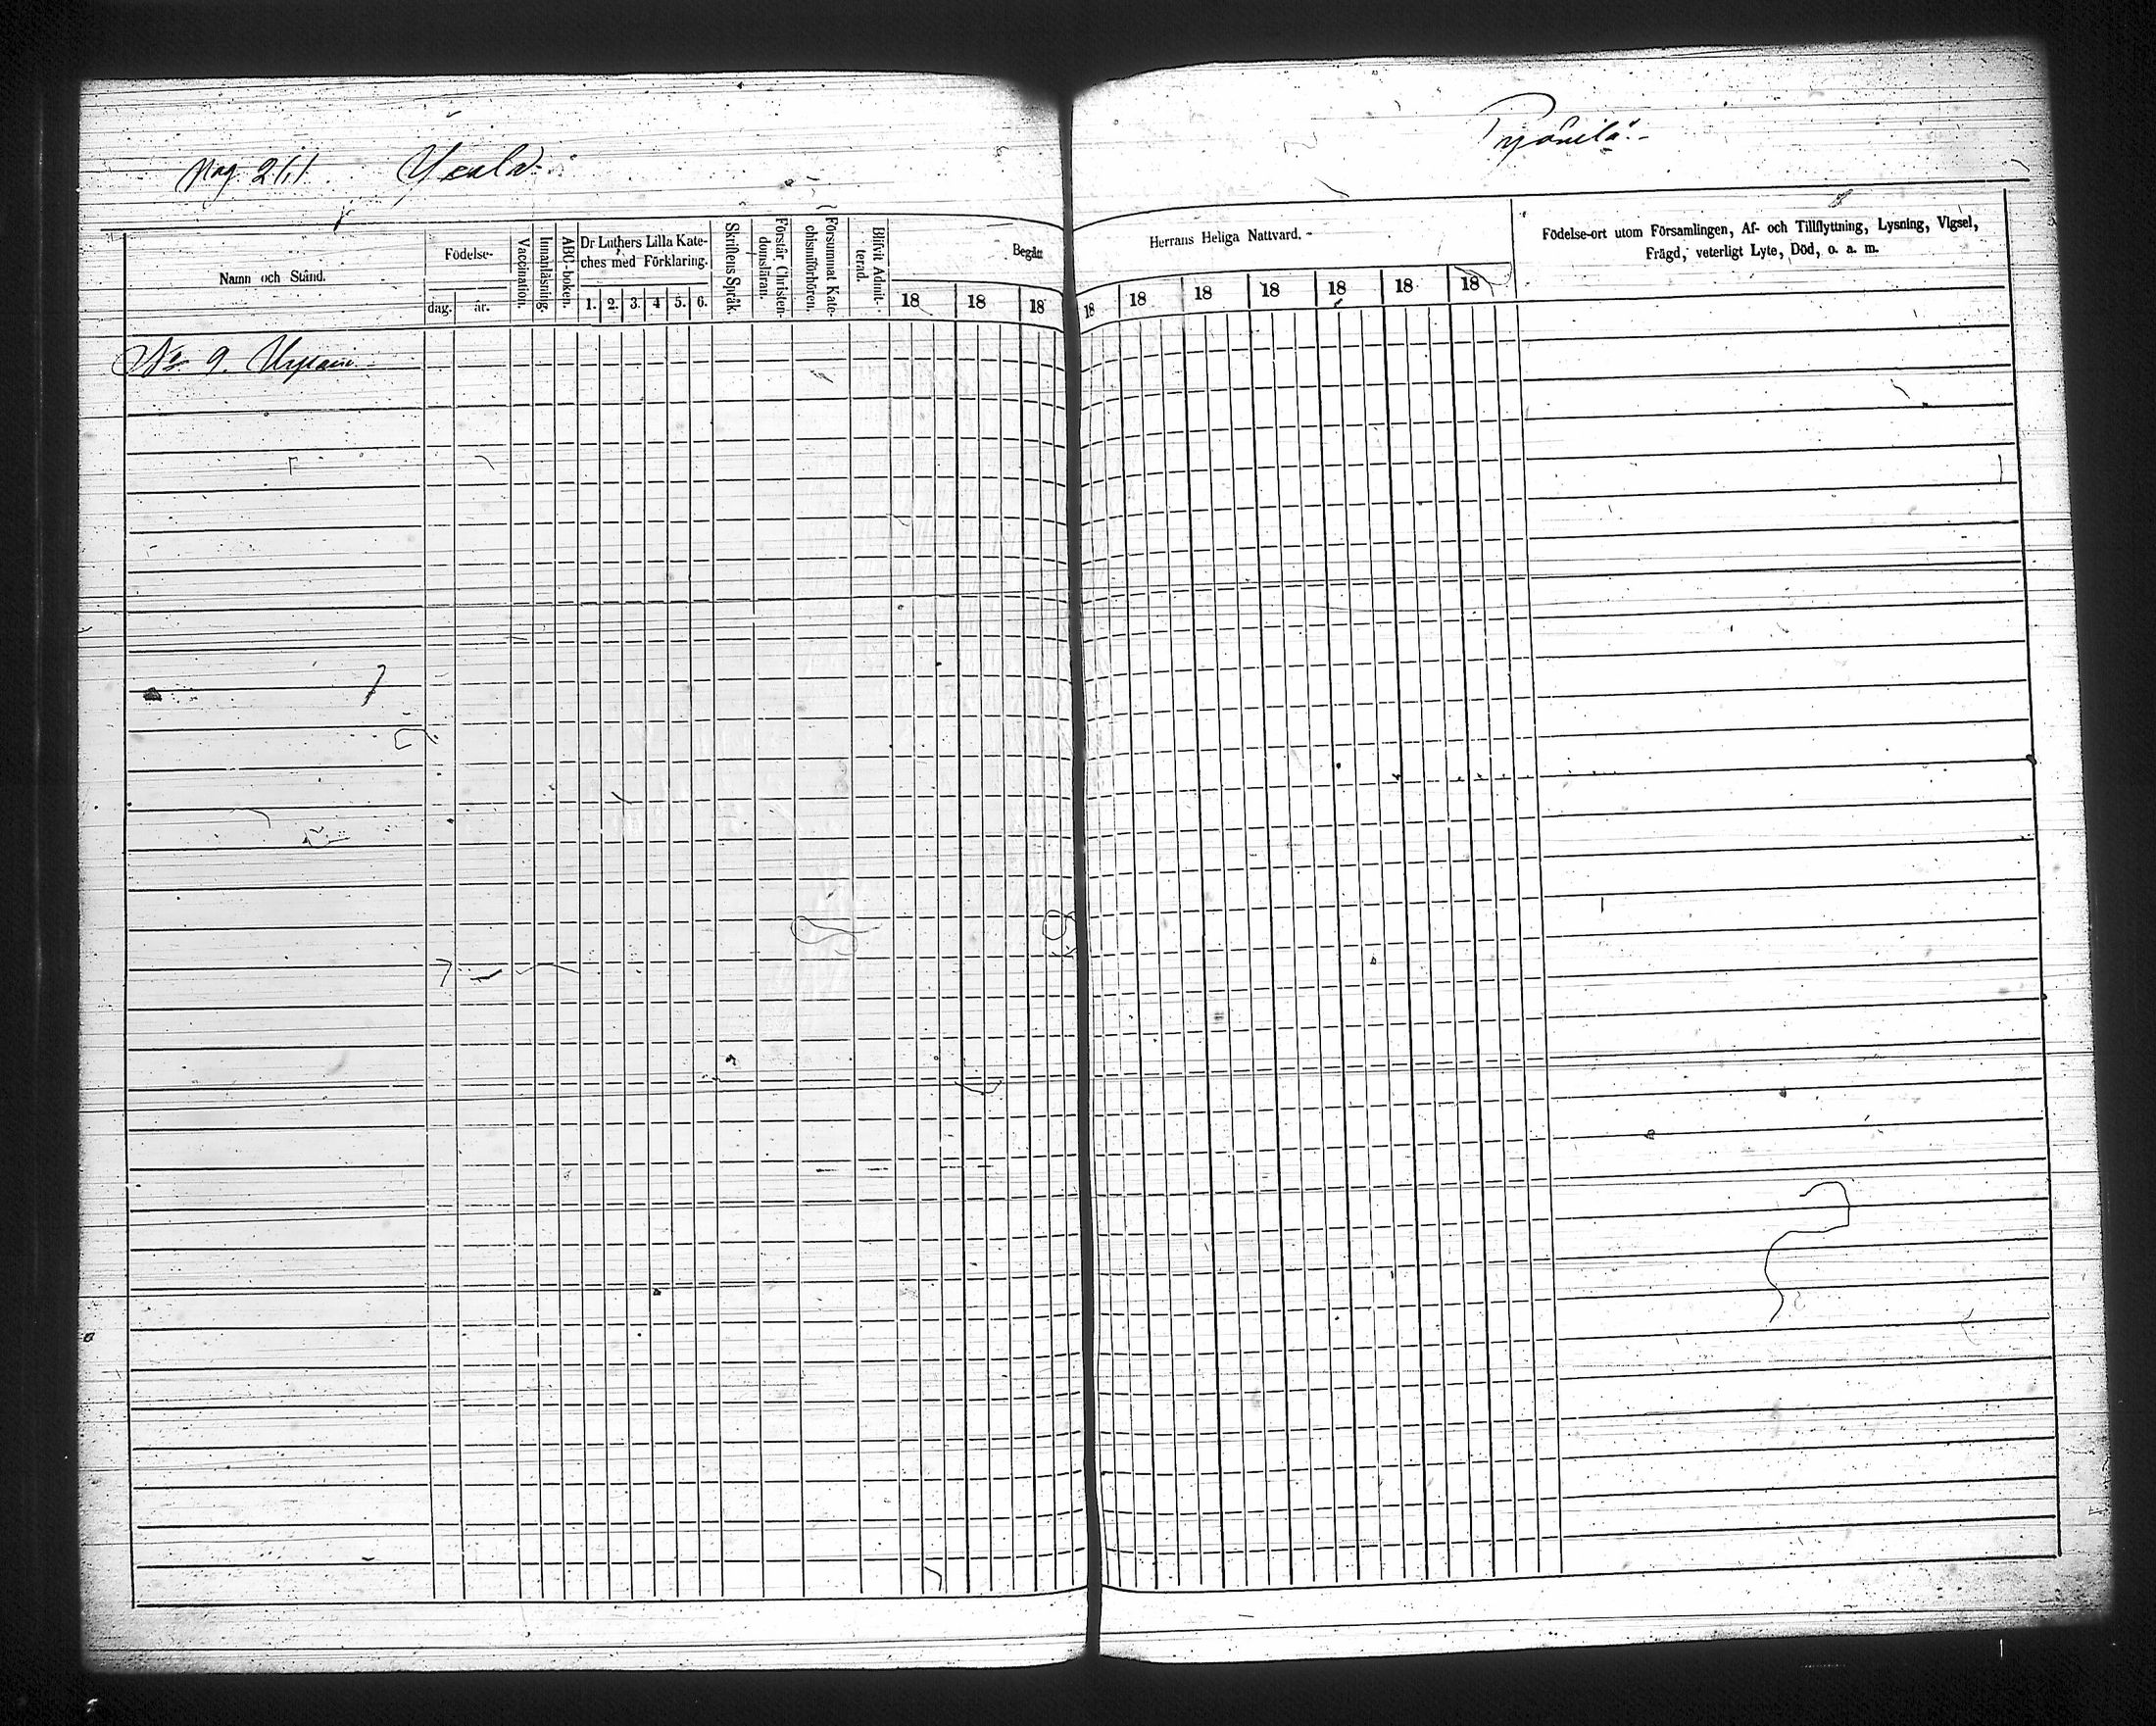 Pag. 211.
Namn och Stånd.
Födelse-
dag. år.
Vaccination.
Innanläsning.
ABC-boken.
Dr Luthers Lilla Kate-
ches med Förklaring.
1. 2. 3. 4 5. 6.
Skriftens Språk.
Förstår Christen-
domsläran.
Försummat Kate-
chismiförhören.
Blifvit Admit-
terad.
Begått
18 18 18
Herrans Heliga Nattvard.
18 18 18 18 18 18 18
Födelse-ort utom Församlingen, Af- och Tillflyttning, Lysning, Vigsel,
Frägd, veterligt Lyte, Död, o. a. m.
No 9.